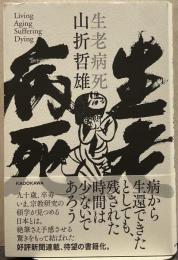 Living
Aging
Suffering
Dying
生老病死
山折哲雄
生老
病死
KADOKAWA
病から
生還できた
としても、
残された
時間は
少ないで
あろう
九十歳、卒寿
いま、宗教研究の
碩学が見つめる
日本とは。
絶筆さえ予感させる
驚きをもって結ばれた
好評新聞連載、待望の書籍化。